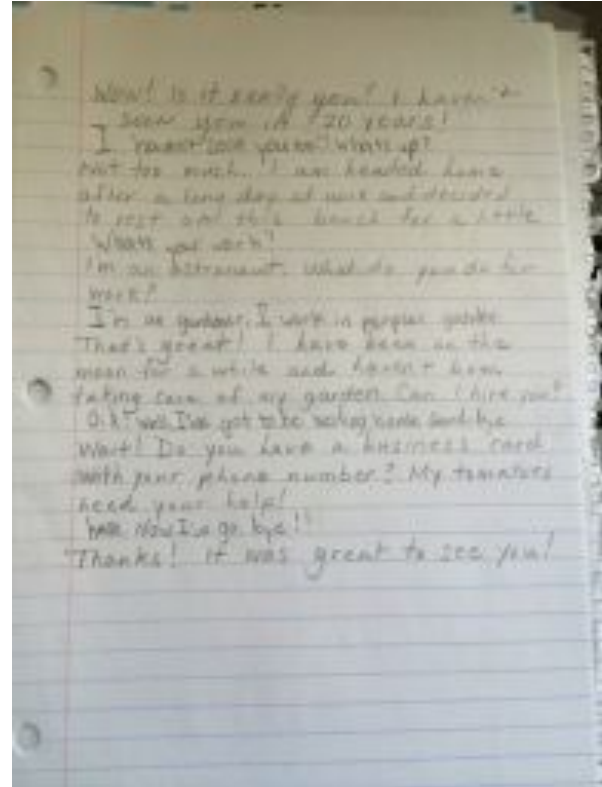 Wow! Is it really you? I haven't
seen you in 20 years!
I haven't seen you too! whats up?
Not too much. I am headed home
after a long day at work and decided
to rest on this bench for a little
Whats your work?
I'm an astronaut. What do you do for
work?
I'm a gardener, I work in peoples garden
That's great! I have been on the
moon for a while and haven't been
taking care of my garden. Can I hire you?
O.k! well I've got to be heading home Good-bye
Wait! Do you have a business card
with your phone number? My tomatoes
need your help!
here. Now I go bye!!
Thanks! It was great to see you!